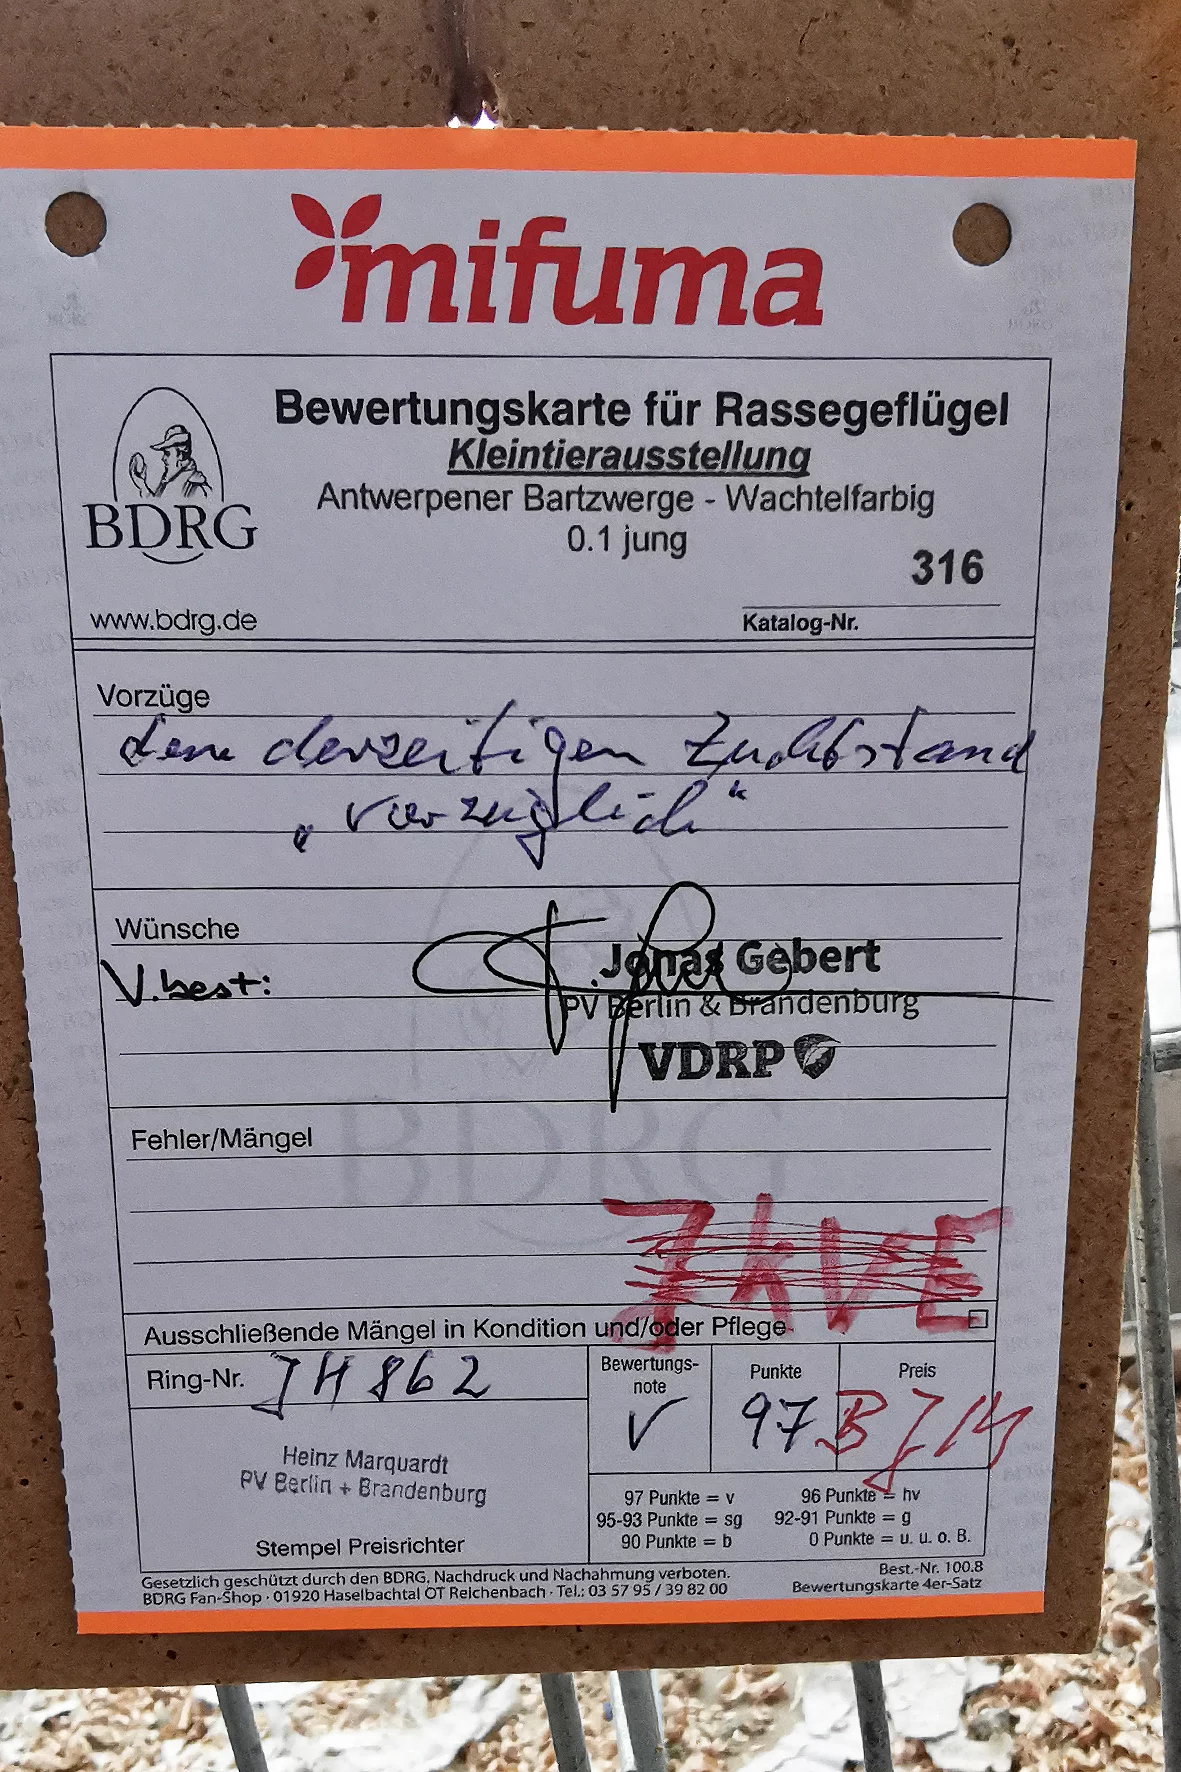 mifuma
Bewertungskarte für Rassegeflügel
Kleintierausstellung
Antwerpener Bartzwerge - Wachtelfarbig
0.1 jung
316
BDRG
www.bdrg.de
Katalog-Nr.
Vorzüge
dem derzeitigen Zuchtstand
„vorzüglich“
Wünsche
V.best:
Jonas Gebert
PV Berlin & Brandenburg
VDRP
BDRG
Fehler/Mängel
JHVE
Ausschließende Mängel in Kondition und/oder Pflege
Ring-Nr. JH 862
Bewertungs-
note
Punkte
Preis
V
97
Heinz Marquardt
PV Berlin + Brandenburg
Stempel Preisrichter
97 Punkte = v 96 Punkte = hv
95-93 Punkte = sg 92-91 Punkte = g
90 Punkte = b 0 Punkte = u. u. o. B.
Gesetzlich geschützt durch den BDRG, Nachdruck und Nachahmung verboten.
BDRG Fan-Shop · 01920 Haselbachtal OT Reichenbach · Tel.: 03 57 95 / 39 82 00
Best.-Nr. 100.8
Bewertungskarte 4er-Satz